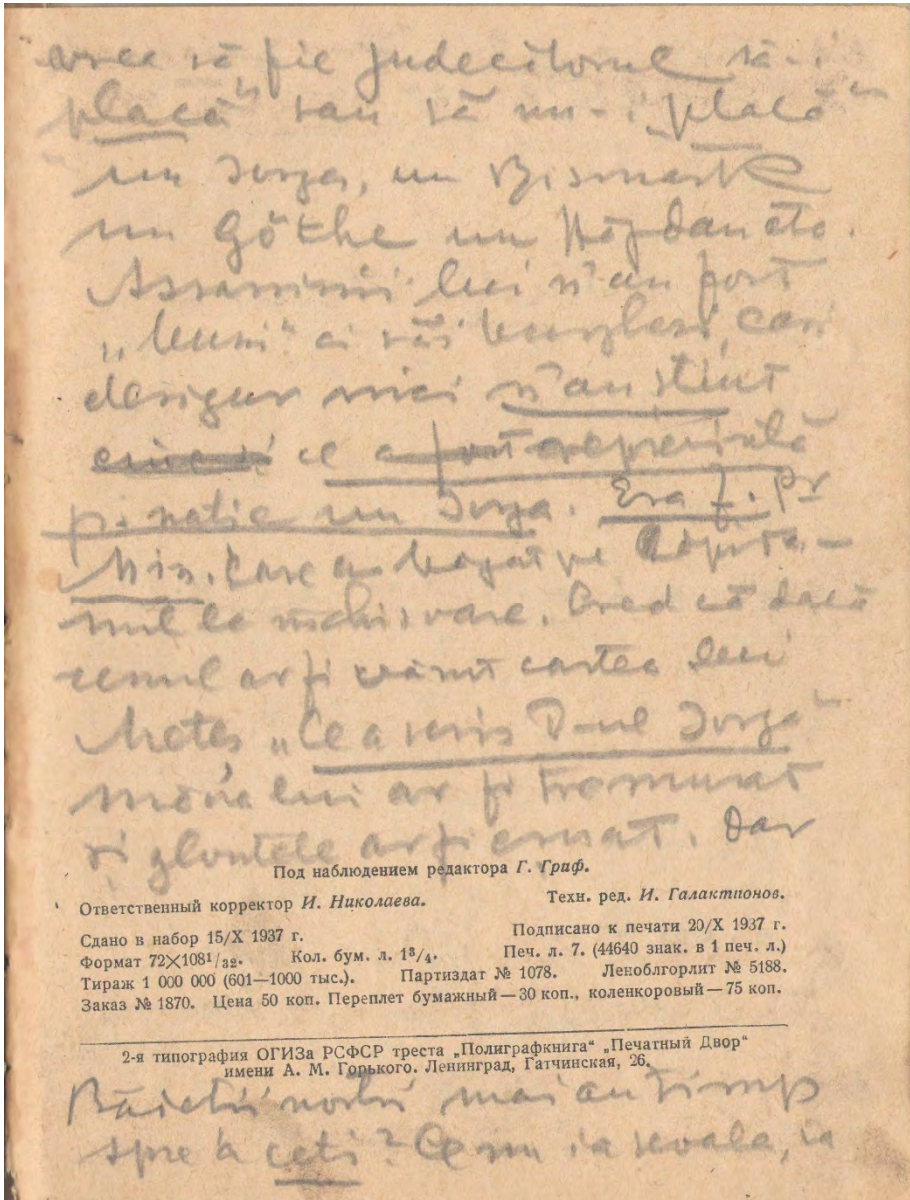 avea să fie judecătorul să-i
placă" sau să nu-i „placă"
un Iorga, un Bismark
un Göthe un Hăjdău etc.
Assasinii lui n'au fost
„buni" ci răi, cari
desigur nici n'au stiut
ce a reprezintă
p. natie un Iorga. Era f. pr
Min. Care a bagat pe Căpita-
nul la inchisoare. Cred că dacă
unul ar fi văzut cartea lui
Metes „Ce a scris D-nul Iorga"
mâna lui ar fi tremurat
și glontele ar fi crutat. Dar
Под наблюдением редактора Г. Граф.
Ответственный корректор И. Николаева. Техн. ред. И. Галактионов.
Сдано в набор 15/X 1937 г. Подписано к печати 20/X 1937 г.
Формат 72×108¹/₃₂. Кол. бум. л. 1³/₄. Печ. л. 7. (44640 знак. в 1 печ. л.)
Тираж 1 000 000 (601—1000 тыс.). Партиздат № 1078. Леноблгорлит № 5188.
Заказ № 1870. Цена 50 коп. Переплет бумажный—30 коп., коленкоровый—75 коп.
2-я типография ОГИЗа РСФСР треста „Полиграфкнига" „Печатный Двор"
имени А. М. Горького. Ленинград, Гатчинская, 26.
Băietii nostri mai au timp
spre a ceti? Cu ia